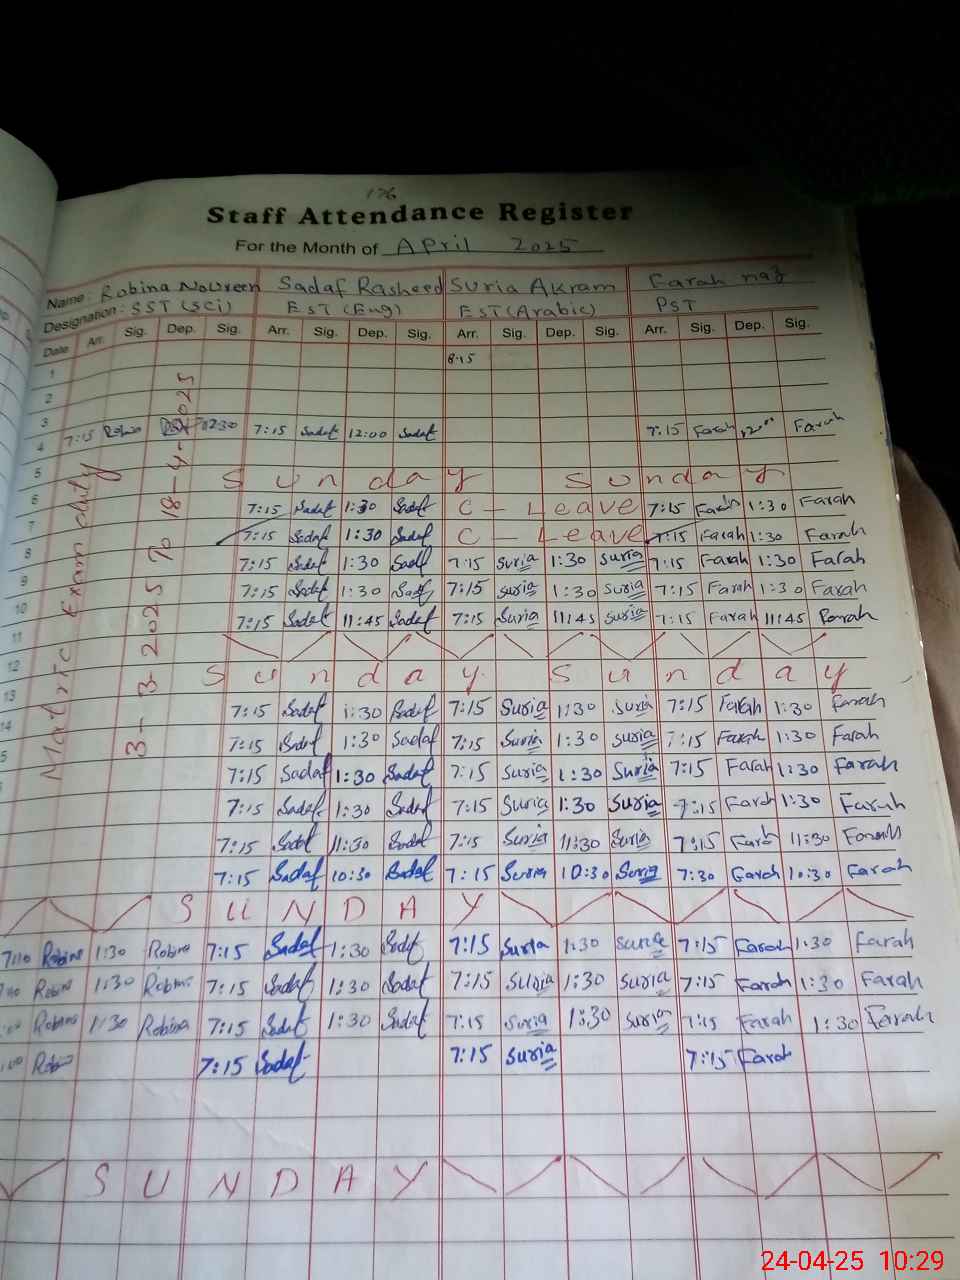 176
Staff Attendance Register
For the Month of April 2025
Name: Robina Noureen Sadaf Rasheed Suria Akram Farah naz
Designation: SST (Sci) EST (Eng) EST (Arabic) PST
Date Arr. Sig. Dep. Sig. Arr. Sig. Dep. Sig. Arr. Sig. Dep. Sig. Arr. Sig. Dep. Sig.
1 8:15
2
3
4 7:15 Robina 12:30 7:15 Sadaf 12:00 Sadaf 7:15 Farah Farah
5
6 Sunday Sunday
7 7:15 Sadaf 1:30 Sadaf C - Leave 7:15 Farah 1:30 Farah
8 7:15 Sadaf 1:30 Sadaf C - Leave 7:15 Farah 1:30 Farah
9 7:15 Sadaf 1:30 Sadaf 7:15 Suria 1:30 Suria 7:15 Farah 1:30 Farah
10 7:15 Sadaf 1:30 Sadaf 7:15 Suria 1:30 Suria 7:15 Farah 1:30 Farah
11 7:15 Sadaf 11:45 Sadaf 7:15 Suria 11:45 Suria 7:15 Farah 11:45 Farah
12
13 Sunday Sunday
14 7:15 Sadaf 1:30 Sadaf 7:15 Suria 1:30 Suria 7:15 Farah 1:30 Farah
5 7:15 Sadaf 1:30 Sadaf 7:15 Suria 1:30 Suria 7:15 Farah 1:30 Farah
7:15 Sadaf 1:30 Sadaf 7:15 Suria 1:30 Suria 7:15 Farah 1:30 Farah
7:15 Sadaf 1:30 Sadaf 7:15 Suria 1:30 Suria 7:15 Farah 1:30 Farah
7:15 Sadaf 11:30 Sadaf 7:15 Suria 11:30 Suria 7:15 Farah 11:30 Farah
7:15 Sadaf 10:30 Sadaf 7:15 Suria 10:30 Suria 7:30 Farah 10:30 Farah
SUNDAY
7:10 Robina 1:30 Robina 7:15 Sadaf 1:30 Sadaf 7:15 Suria 1:30 Suria 7:15 Farah 1:30 Farah
Robina 1:30 Robina 7:15 Sadaf 1:30 Sadaf 7:15 Suria 1:30 Suria 7:15 Farah 1:30 Farah
Robina 1:30 Robina 7:15 Sadaf 1:30 Sadaf 7:15 Suria 1:30 Suria 7:15 Farah 1:30 Farah
Robina 7:15 Sadaf 7:15 Suria 7:15 Farah
SUNDAY
Matric Exam duty
3-3-2025 To 18-4-2025
24-04-25 10:29